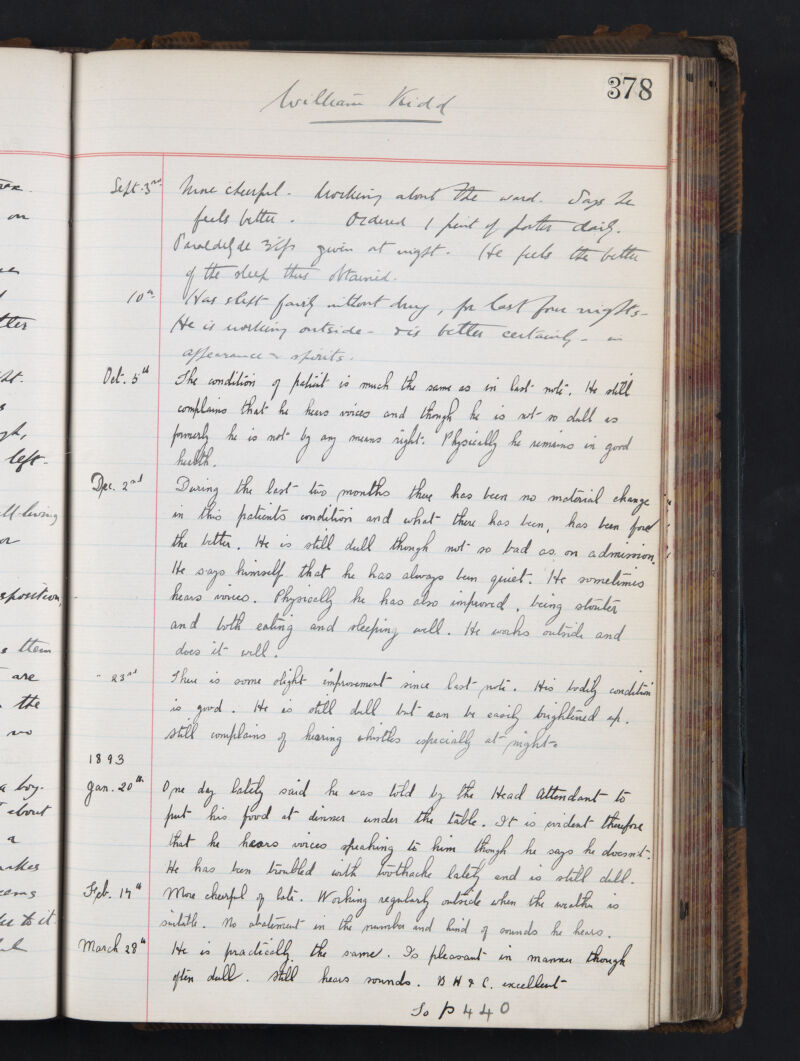 378
William Kidd
Sept. 3rd More cheerful. Working about the ward. Says he
feels better. Ordered 1 pint of porter daily.
Paraldehyde given at night. He feels the better
of the sleep thus obtained.
10th Has slept fairly without drug, for last four nights-
He is working outside - & is better certainly - in
appearance & spirits.
Oct. 5th The condition of patient is much the same as in last note. He still
complains that he hears voices and though he is not so dull as
formerly he is not by any means right. Physically he remains in good
health.
Dec. 2nd During the last two months there has been no material change
in this patients condition and what there has been, has been for
the better. He is still dull though not so bad as on admission.
He says himself that he has always been quiet. He sometimes
hears voices. Physically he has also improved, being stouter
and both eating and sleeping well. He works outside and
does it well.
" 23rd There is some slight improvement since last note. His bodily condition
is good. He is still dull but can be easily brightened up.
Still complains of hearing whistles especially at night.
1893
Jan. 20th One day lately said he was told by the Head Attendant to
put his food at dinner under the table. It is evident therefore
that he hears voices speaking to him though he says he doesn't.
He has been troubled with toothache lately and is still dull.
Feb. 17th More cheerful of late. Working regularly outside when the weather is
suitable. No abatement in the number and kind of sounds he hears.
March 28th He is practically the same. Is pleasant in manner though
often dull. Still hears sounds. B H & C. excellent-
To p 440
on
left.
are
the
no
a boy.
about
a